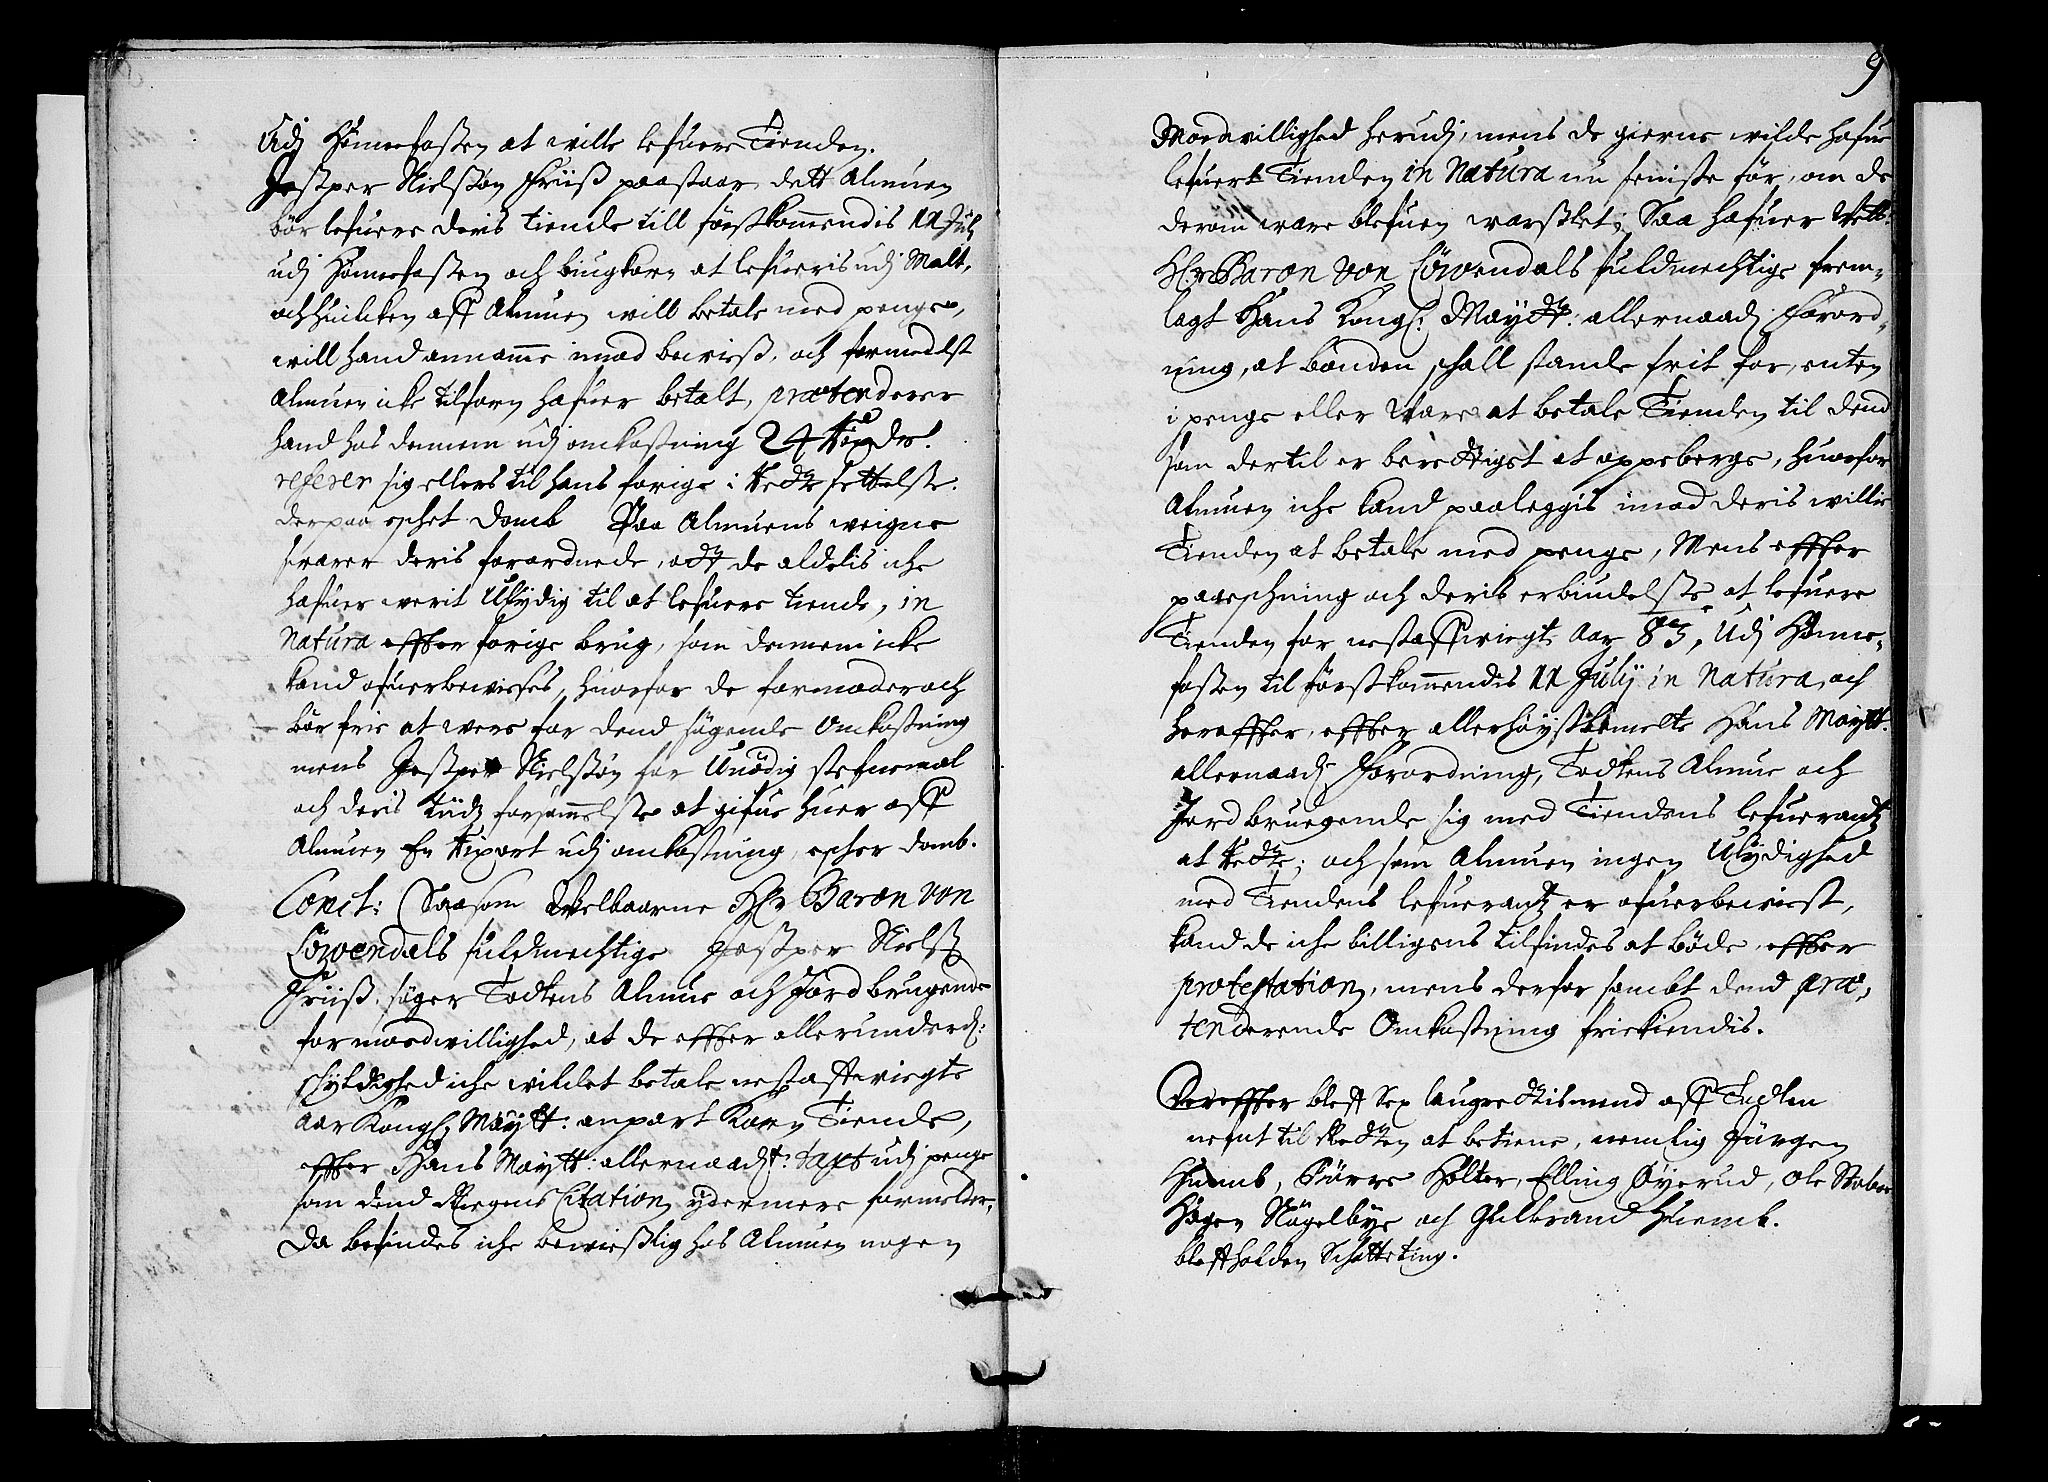 Udj Hommefossen at wille lefuere Tienden.
Jesper Nielssøn Friiss paastaar dett Almuen
bør lefuere deris tiende till førstkommendis 11 July
udj Hommefossen och biugkorn at lefueris udj Malt,
och huilcken aff Almuen will betale med penge,
will hand annamme imod beviss, och formedelst
Almuen icke tilforn hafuer betalt, prætenderer
hand hos dennem udj omkostning 24 Rixdr.
referer sig ellers til hans forige i Rette settelse.
derpaa eschet domb Paa Almuens weigne
svarer deris forordnede, att de aldelis iche
hafuer werit Ulydig til at lefuere tiende, in
Natura effter forige brug, som dennem icke
kand ofuerbevises, huorfor de formoder och
bør frie at were for dend søgende Omkostning
mens Jesper Nielssøn for Unødig stefnemal
och deris tiidz forsømmelse at gifue huer aff
Almuen En Rixort udj omkostning, escher domb.
Concl: Saasom Welbaarne Hr Baron von
Löwendals fuldmechtige Jesper Nielss
Friiss, søger Todtens Almue och Jordbrugende
for modvillighed, at de effter allerunderd:
schyldighed iche wildet betale nestafftvigte
aar Kongl Maytt: anpart Korn Tiende,
effter Hans Maytt: allernaadst: taxt udj penge
som dend Skregens Citation ydermere formelder,
Da befindes iche bevisslig hos Almuen nogen
9
Modvillighed herudj, mens de gierne wilde hafue
lefuert Tienden in Natura nu seniste før, om de
derom ware blefuen warsklet; Saa hafuer Welb:
Hr Baron Von Löwendals fuldmechtige frem-
lagt Hans Kongl: Maytt: allernaadj: Forord-
ning, at bonden schall stande frit for, enten
i penge eller Ware at betale Tienden til dend
som dertil er berettiget at oppeberge, huorfor
Almuen iche kand paaleggis imod deris willie
Tienden at betale med penge, Mens effter
paaeschning och deris erbiudelse at lefuere
Tienden for nestaffvigte Aar 83, Udj Homme-
fossen til førstkommendis 11 July in Natura, och
hereffter, effter allerhøystbemelte Hans Maytt.
allernaadj Forordning, Todtens Almue och
Jord bruegende sig med Tiendens lefuerantz
at Rette; och som Almuen ingen Ulydighed
med Tiendens lefuerantz er ofuerbevist,
kand de iche billigens tilfindes at bøde effter
protestation, mens derfor sambt dend præ-
tenderende Omkostning friekiendis.
Dereffter bleff sex laugrettismend aff Todten
nefnt til Retten at betiene, nemlig Jürgen
Huemb, Børre Holter, Elling Øyerud, Ole Stabo
Hogen Nøgelbye och Gulbrand Huemb.
bleff holden Schatteting.